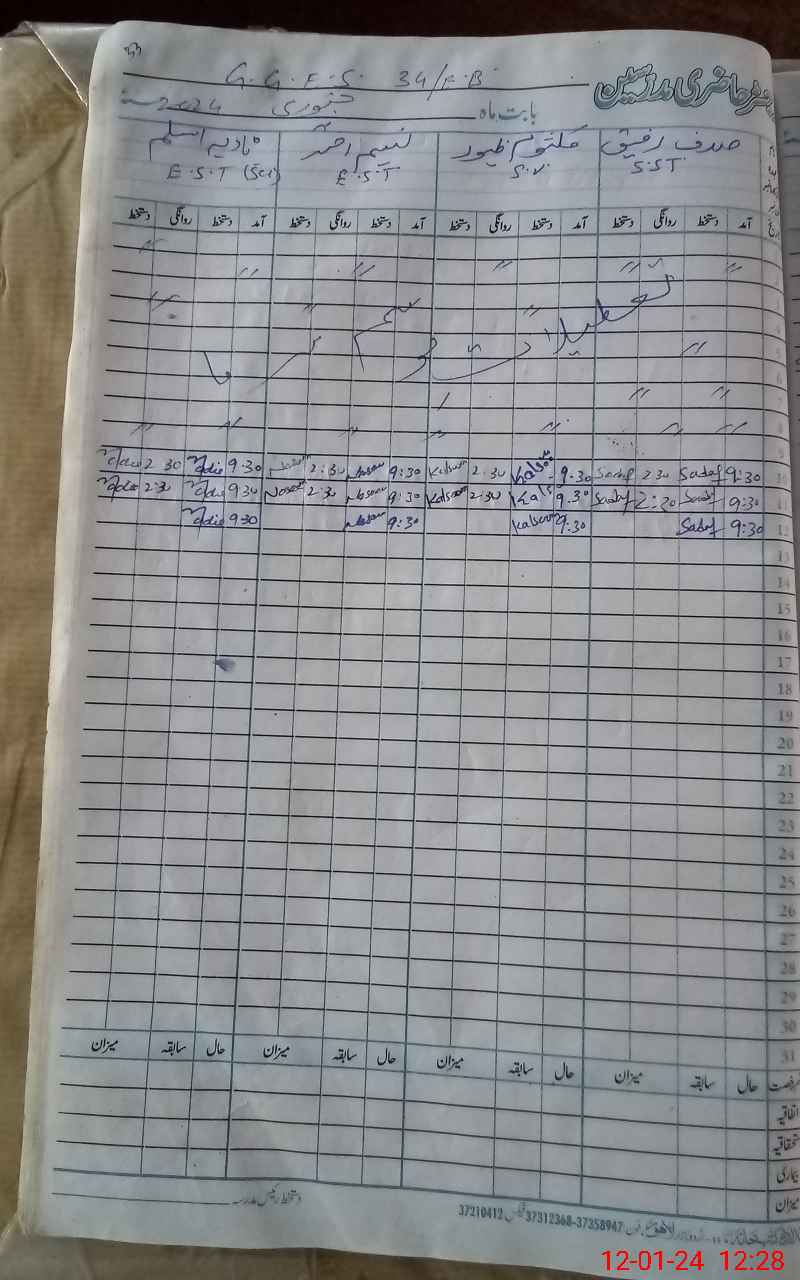 33
G.G.E.S. 34/F.B
رجسٹر حاضری مدرسین
بابت ماہ جنوری 2024 سنہ
صدف رفیق کلثوم ظہور نسیم اختر نادیہ اسلم
S.S.T. S.V. E.S.T E.S.T (Sci)
آمد دستخط روانگی دستخط آمد دستخط روانگی دستخط آمد دستخط روانگی دستخط آمد دستخط روانگی دستخط
1
2 〃 〃 〃 〃 〃
3
4
5
6
7
8
9
تعطیلات موسم سرما
10 9:30 Sadaf 2:30 Sadaf 9:30 Kalsoom 2:30 Kalsoom 9:30 Naseem 2:30 Naseem 9:30 Nadia 2:30 Nadia
11 9:30 Sadaf 2:30 Sadaf 9:30 Kalsoom 2:30 Kalsoom 9:30 Naseem 2:30 Naseem 9:30 Nadia 2:30 Nadia
12 9:30 Sadaf 9:30 Kalsoom 9:30 Naseem 9:30 Nadia
13
14
15
16
17
18
19
20
21
22
23
24
25
26
27
28
29
30
31
رخصت حال سابقہ میزان حال سابقہ میزان حال سابقہ میزان حال سابقہ میزان
اتفاقیہ
استحقاقیہ
بیماری
میزان
دستخط رئیس مدرسہ
37210412 فیکس 37312368-37358947 فون
12-01-24 12:28